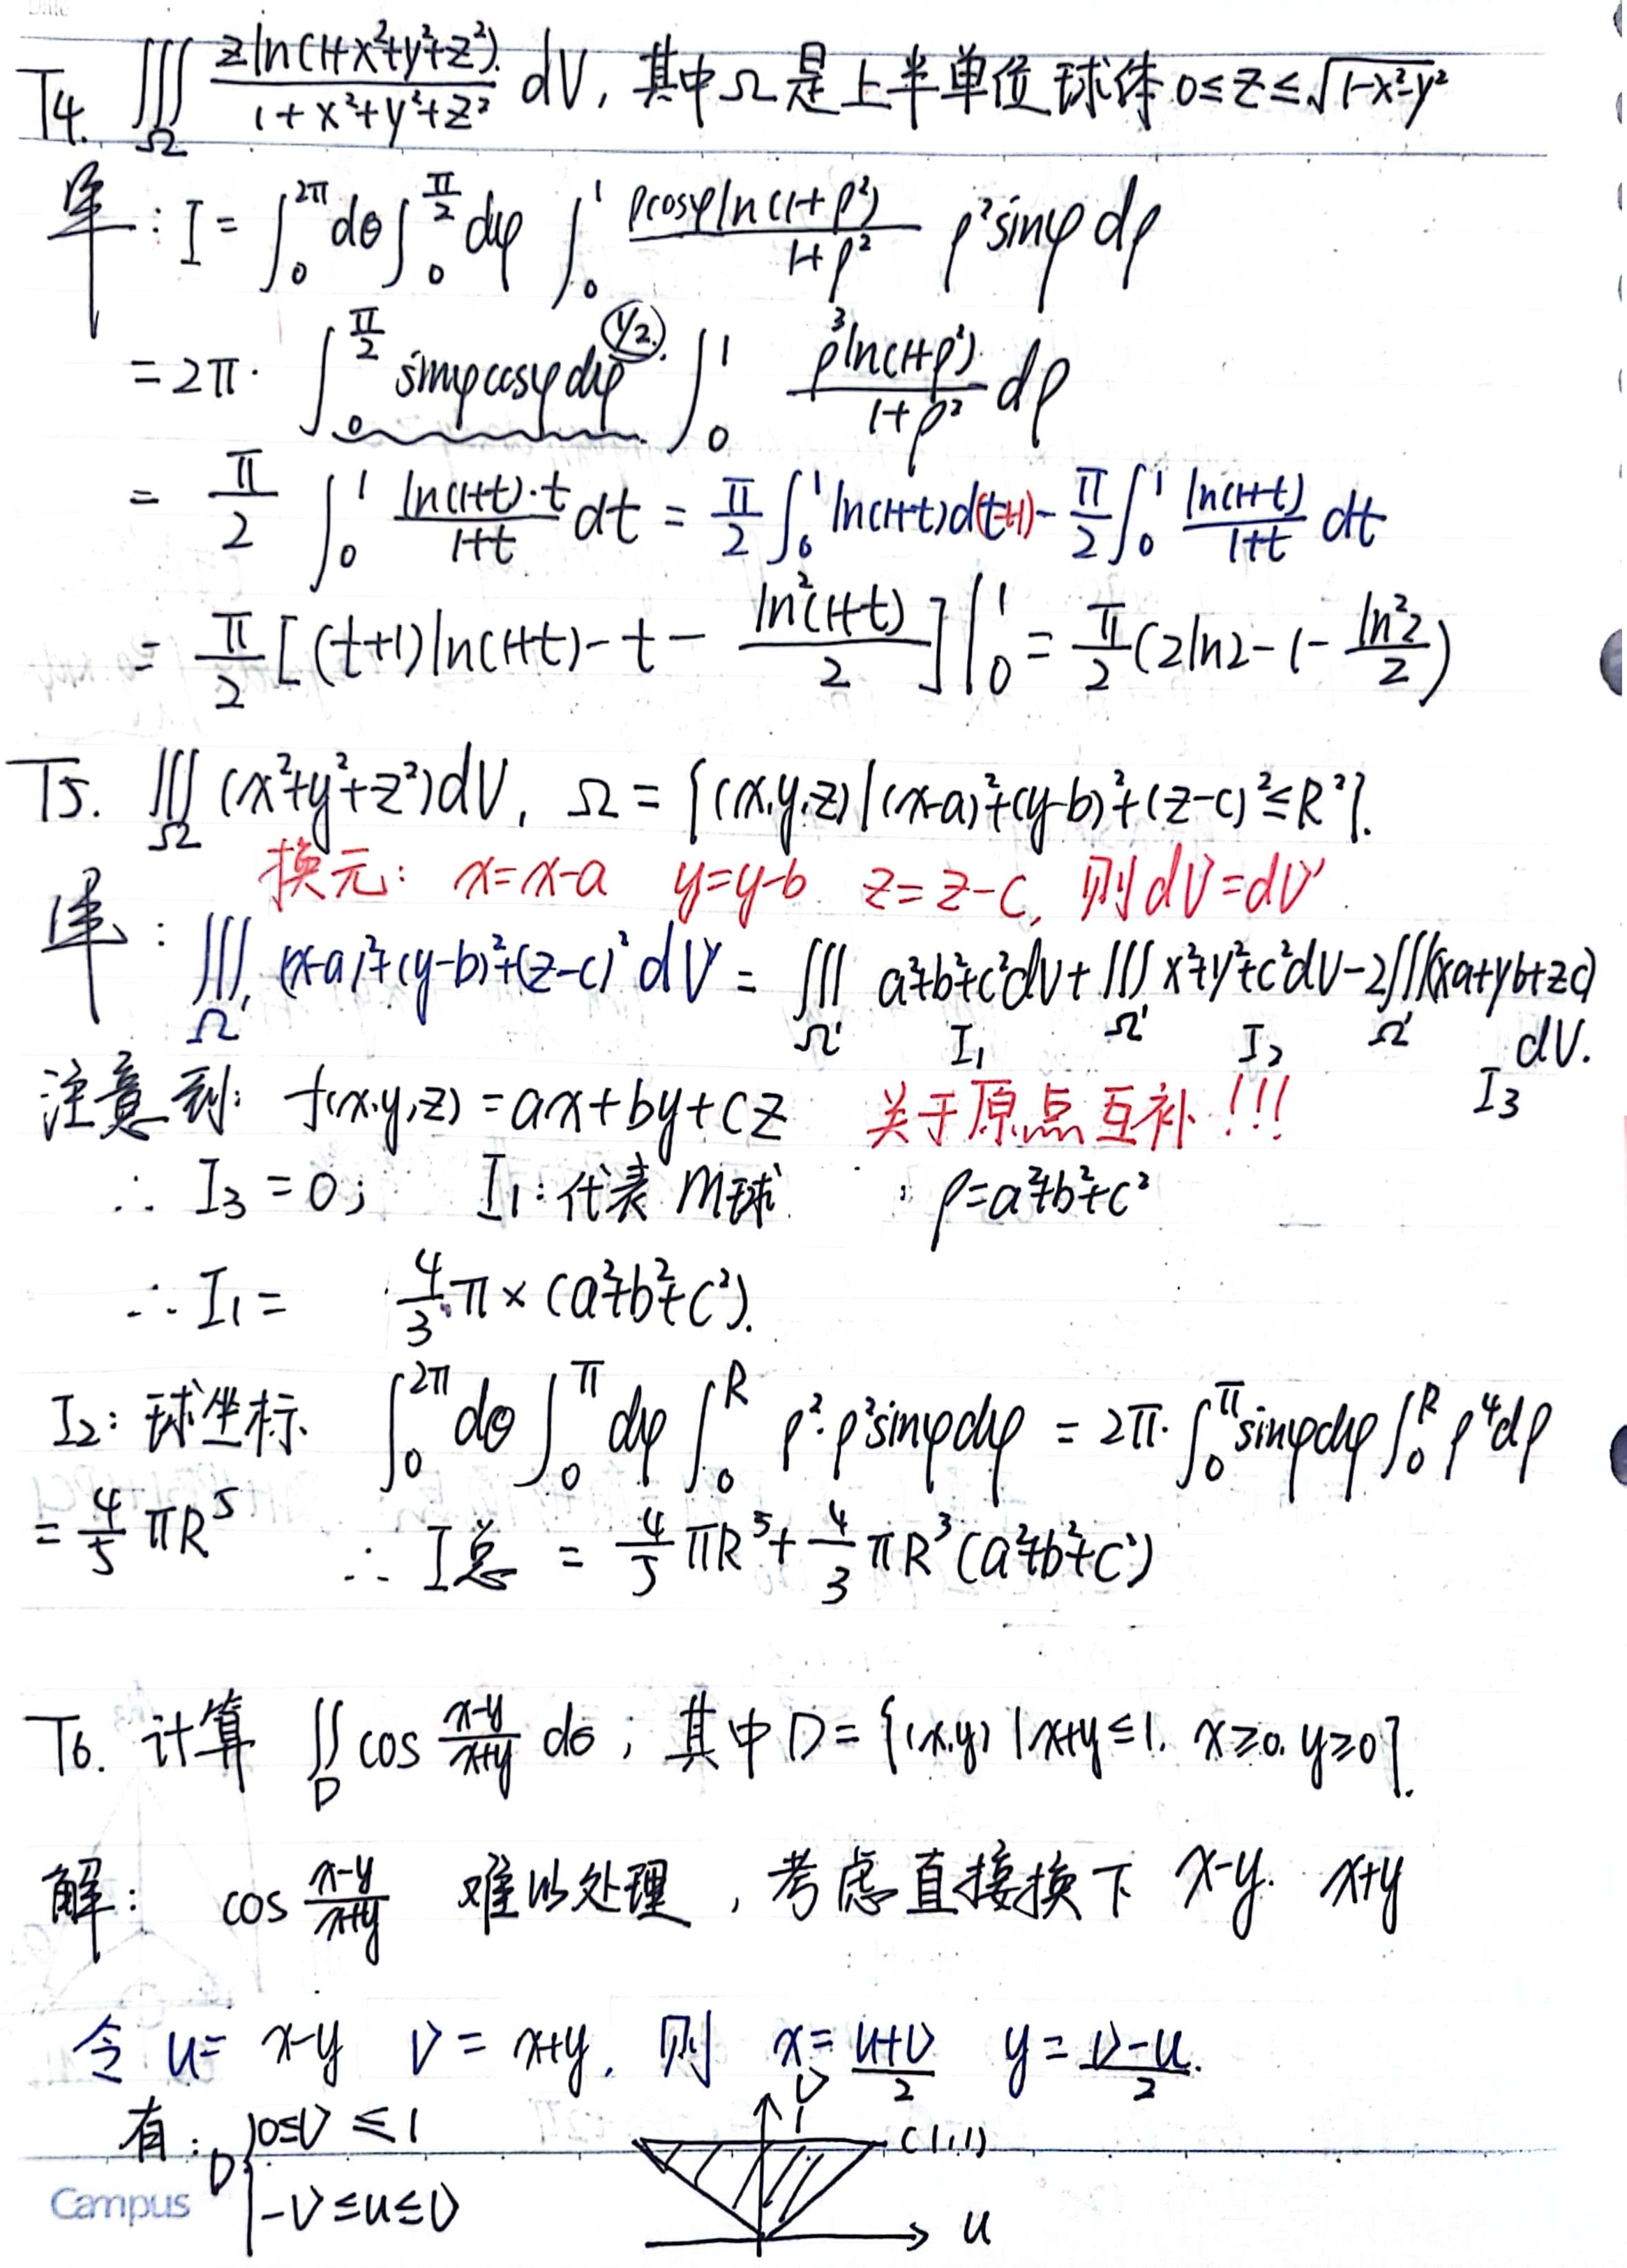 T4. ∭_Ω zln(1+x²+y²+z²)/(1+x²+y²+z²) dV, 其中Ω是上半单位球体 0≤z≤√(1-x²-y²)
解: I = ∫₀^{2π} dθ ∫₀^{π/2} dφ ∫₀¹ ρcosφln(1+ρ²)/(1+ρ²) ρ²sinφ dρ
= 2π· ∫₀^{π/2} sinφcosφdφ (1/2) · ∫₀¹ ρ³ln(1+ρ²)/(1+ρ²) dρ
= π/2 ∫₀¹ ln(1+t)·t/(1+t) dt = π/2 ∫₀¹ ln(1+t)d(t+1) - π/2 ∫₀¹ ln(1+t)/(1+t) dt
= π/2 [(t+1)ln(1+t)-t- ln²(1+t)/2]|₀¹ = π/2 (2ln2-1- ln²2/2)
T5. ∭_Ω (x²+y²+z²)dV, Ω = {(x,y,z)|(x-a)²+(y-b)²+(z-c)²≤R²}.
换元: x=x-a y=y-b z=z-c, 则dV=dV'
解: ∭_Ω' (x-a)²+(y-b)²+(z-c)² dV' = ∭_Ω' a²+b²+c²dV + ∭_Ω' x²+y²+c²dV - 2∭_Ω' (xa+yb+zc) dV.
I₁ I₂ I₃
注意到: f(x,y,z) = ax+by+cz 关于原点互补!!!
∴ I₃ = 0; I₁: 代表 M球 ρ=a²+b²+c²
∴ I₁ = 4/3 π × (a²+b²+c²).
I₂: 球坐标. ∫₀^{2π} dθ ∫₀^π dφ ∫₀^R ρ²·ρ²sinφdφ = 2π· ∫₀^π sinφdφ ∫₀^R ρ⁴dρ
= 4/5 πR⁵ ∴ I总 = 4/5 πR⁵ + 4/3 πR³(a²+b²+c²)
T6. 计算 ∬_D cos (x-y)/(x+y) dσ; 其中D = {(x,y)|x+y≤1, x≥0, y≥0}.
解: cos (x-y)/(x+y) 难以处理, 考虑直接换下 x-y. x+y
令 u= x-y v = x+y, 则 x= (u+v)/2 y = (v-u)/2.
有: D { 0≤v≤1
-v≤u≤v
v
1
(1,1)
u
Campus